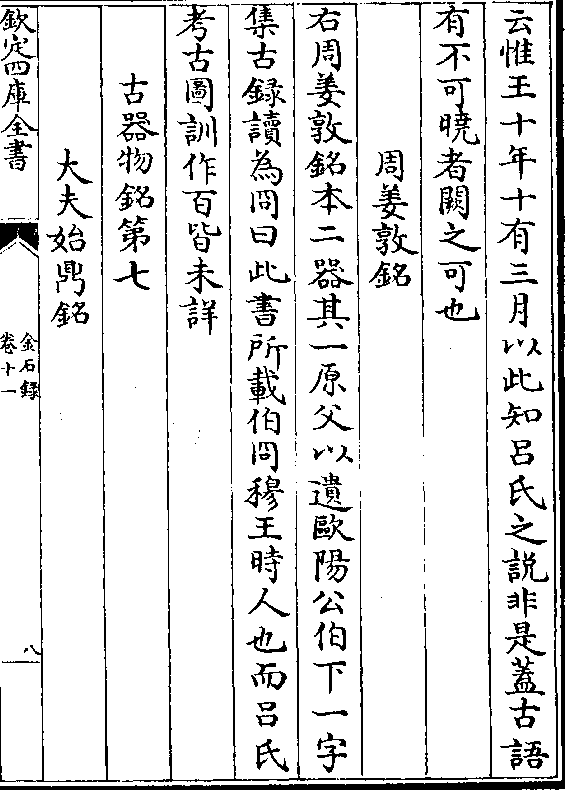 云惟王十年十有三月以此知吕氏之説非是蓋古語
有不可曉者闕之可也
周姜敦銘
右周姜敦銘本二器其一原父以遺歐陽公伯下一字
集古録讀為冏曰此書所載伯冏穆王時人也而吕氏
考古圖訓作百皆未詳
古器物銘第七
大夫始鼎銘
欽定四庫全書
金石録
卷十一
八